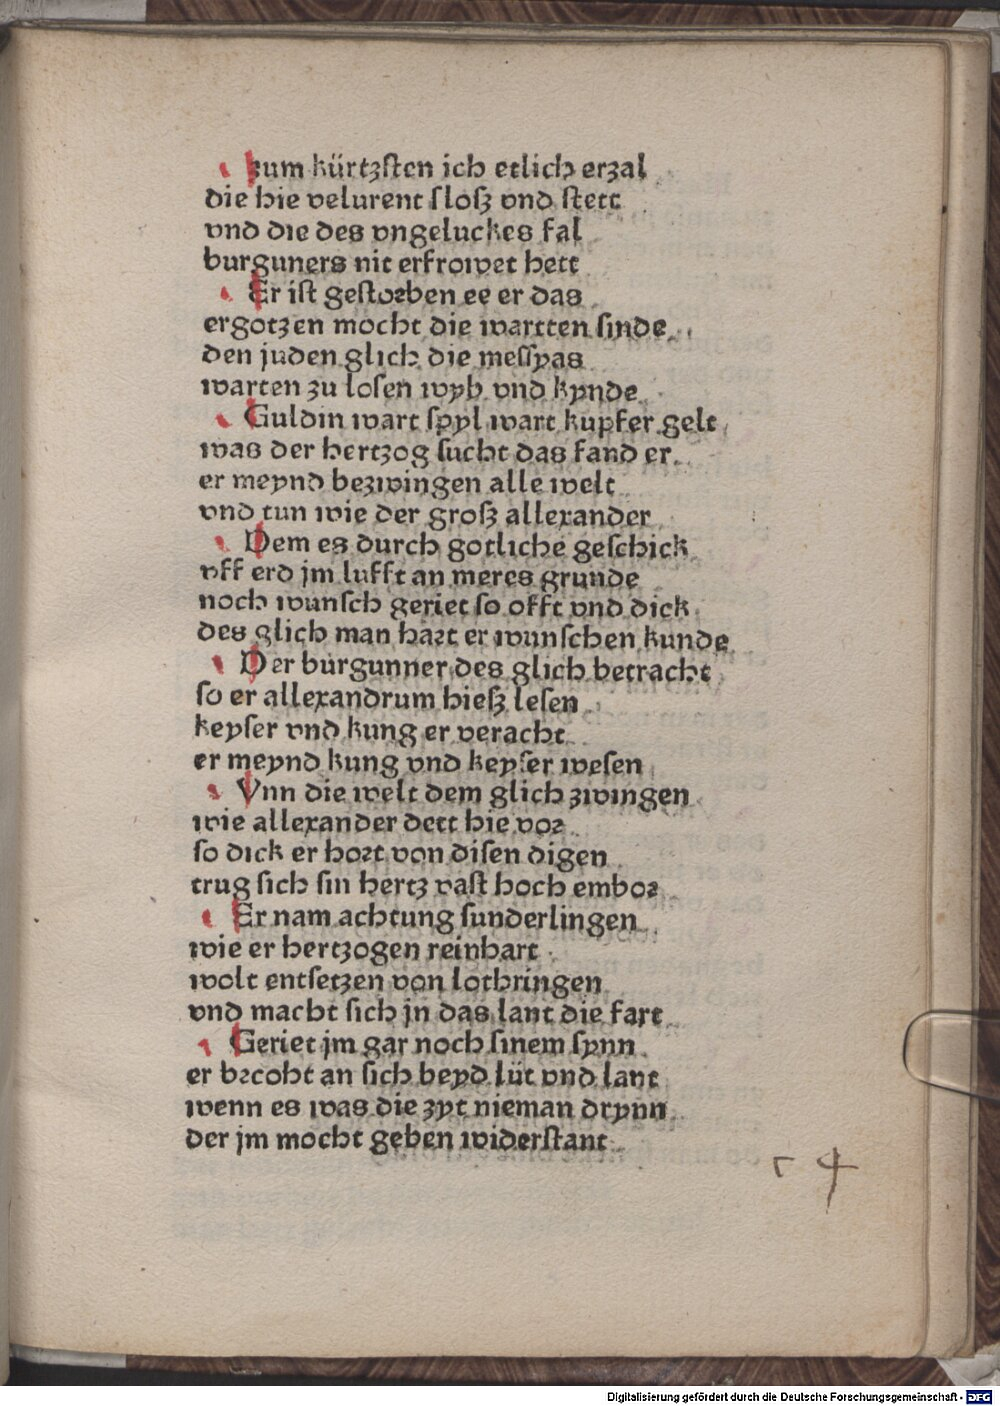 zum kürtzsten ich etlich erzal
die hie velurent sloß vnd stett
vnd die des vngeluckes fal
burguners nit erfrowet hett
Er ist gestorben ee er das
ergotzen mocht die wartten sinde
den juden glich die messyas
warten zu losen wyb vnd kynde
Guldin wart spyl wart kupfer gelt
was der hertzog sucht das fand er
er meynd bezwingen alle welt
vnd tun wie der groß allexander
Dem es durch gotliche geschick
vff erd jm lufft an meres grunde
noch wunsch geriet so offt vnd dick
des glich man hart er wunschen kunde
Der burgunner des glich betracht
so er allexandrum hieß lesen
keyser vnd kung er veracht
er meynd kung vnd keyser wesen
Vnn die welt dem glich zwingen
wie allexander dett hie vor
so dick er hort von disen digen
trug sich sin hertz vast hoch embor
Er nam achtung sunderlingen
wie er hertzogen reinhart
wolt entsetzen von lothringen
vnd macht sich jn das lant die fart
Geriet jm gar noch sinem synn
er brcoht an sich beyd lüt vnd lant
wenn es was die zyt nieman drynn
der jm mocht geben widerstant
c 4
Digitalisierung gefördert durch die Deutsche Forschungsgemeinschaft - DFG